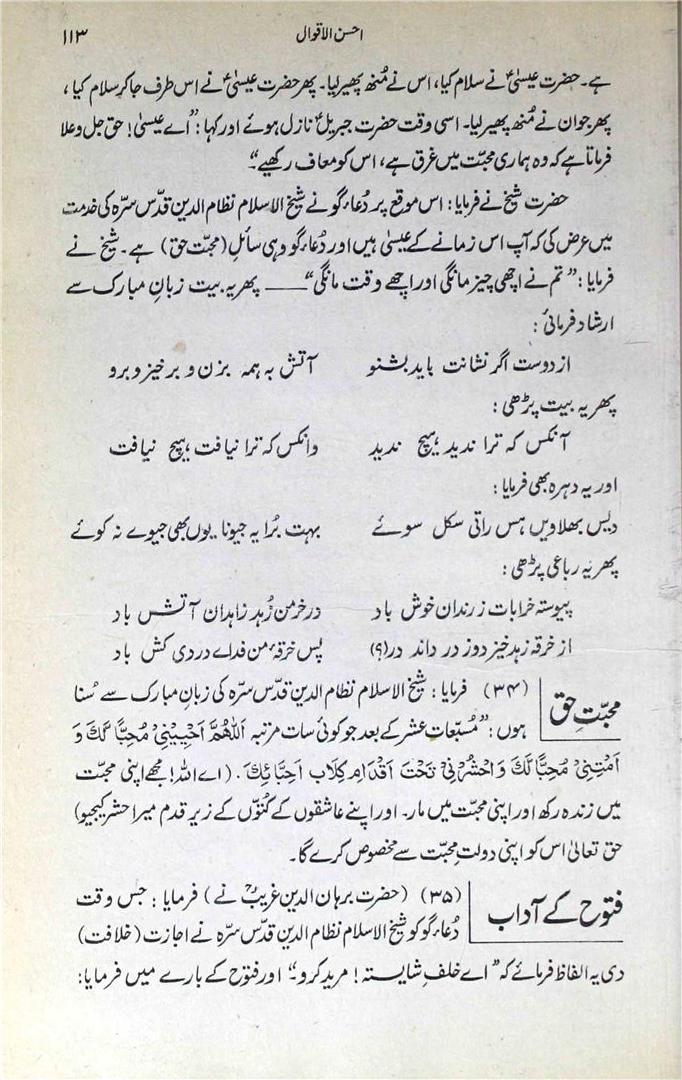 احسن الاقوال ۱۱۳
ہے۔ حضرت عیسیٰؑ نے سلام کیا، اس نے مُنھ پھیر لیا۔ پھر حضرت عیسیٰؑ نے اس طرف جاکر سلام کیا،
پھر جوان نے مُنھ پھیر لیا۔ اسی وقت حضرت جبریلؑ نازل ہوئے اور کہا: "اے عیسیٰ! حق جل وعلا
فرماتا ہے کہ وہ ہماری محبّت میں غرق ہے، اس کو معاف رکھیے۔"
حضرت شیخ نے فرمایا: اس موقع پر دُعاء گو نے شیخ الاسلام نظام الدین قدّس سرّہ کی خدمت
میں عرض کی کہ آپ اس زمانے کے عیسیٰ ہیں اور دُعاء گو وہی سائلِ (محبّت حق) ہے۔ شیخ نے
فرمایا: "تم نے اچھی چیز مانگی اور اچھے وقت مانگی" —— پھر یہ بیت زبانِ مبارک سے
ارشاد فرمائی:
از دوست اگر نشانت باید بشنو آتش بہ ہمہ بزن و برخیز و برو
پھر یہ بیت پڑھی:
آنکس کہ ترا ندید ہیچ ندید وانکس کہ ترا نیافت ہیچ نیافت
اور یہ دہرہ بھی فرمایا:
دیس بھلاویں ہس راتی سکل سوئے بہت بُرا یہ جیونا یوں بھی جیوے نہ کوئے
پھر یہ رباعی پڑھی:
پیوستہ خرابات ز رندان خوش باد در خرمن زُہد زاہدان آتش باد
از خرقہ زہد خیز دوز در داند در(؟) پس خرقہٴ من فداے دردی کش باد
محبّتِ حق
(۳۴) فرمایا: شیخ الاسلام نظام الدین قدّس سرّہ کی زبانِ مبارک سے سُنا
ہوں: "مُسبّعات عشر کے بعد جو کوئی سات مرتبہ اَللّٰهُمَّ اَحْيِيْنِیْ مُحِبًّا لَّكَ وَ
اَمِتْنِیْ مُحِبًّا لَّكَ وَاحْشُرْنِیْ تَحْتَ اَقْدَامِ كِلَابِ اَحِبَّائِكَ۔ (اے اللہ! مجھے اپنی محبّت
میں زندہ رکھ اور اپنی محبّت میں مار۔ اور اپنے عاشقوں کے کُتوّں کے زیرِ قدم میرا حشر کیجیو)
حق تعالیٰ اس کو اپنی دولتِ محبّت سے مخصوص کرے گا۔
فتوح کے آداب
(۳۵) (حضرت برہان الدین غریبؒ نے) فرمایا: جس وقت
دُعاء گو کو شیخ الاسلام نظام الدین قدّس سرّہ نے اجازت (خلافت)
دی یہ الفاظ فرمائے کہ "اے خلفِ شایستہ! مرید کرو۔" اور فتوح کے بارے میں فرمایا: